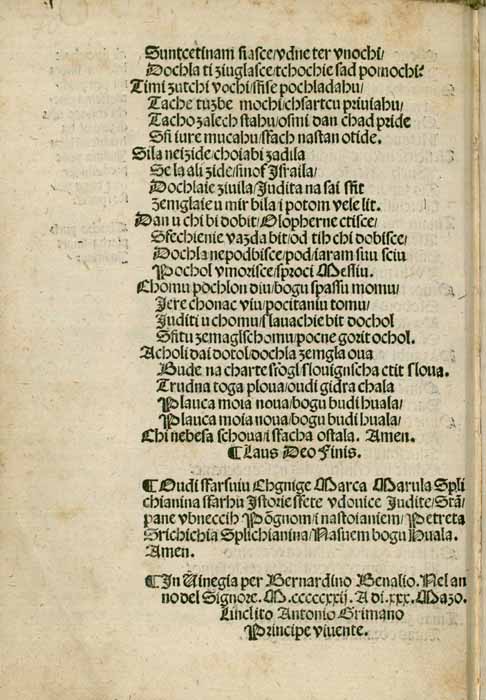 Suntcetinam siasce/vdne ter vnochi/
Dochla ti ziuglasce/tchochie sad pomochi?
Timi zutchi vochi/sfise pochladahu/
Tache tuzbe mochi/chsartcu priuiahu/
Tacho zalech stahu/osmi dan chad pride
Sfi iure mucahu/sfach nastan otide.
Sila neizide/choiabi zadila
Se la ali zide/sinof Israila/
Dochlaie ziuila/Judita na sai sfit
Zemglaie u mir bila i potom vele lit.
Dan u chi bi dobit/Olopherne ctisce/
Sfechienie vazda bit/od tih chi dobisce/
Dochla nepodbisce/pod/iaram suu sciu
Pochol vmorisce/sproci Messiu.
Chomu pochlon diu/bogu spassu momu/
Jere chonac viu/pocitaniu tomu/
Juditi u chomu/slauachie bit dochol
Sfitu zemaglschomu/pocne gorit ochol.
Acholi dai dotol/dochla zemgla oua
Bude na charte srogl slouignscha ctit sloua.
Trudna toga ploua/oudi gidra chala
Plauca moia noua/bogu budi huala/
Plauca moia noua/bogu budi huala/
Chi nebesa schoua/i sfacha ostala. Amen.
¶ Laus Deo Finis.
¶ Oudi sfarsuiu Chgnige Marca Marula Spli
chianina sfarhu Istorie sfete vdouice Judite/Stā/
pane vbneccih Pōgnom/i nastoianiem/Petreta
Srichichia Splichianina/Nasuem bogu Huala.
Amen.
¶ In Uinegia per Bernardino Benalio. Nel an
no del Signore. M.cccccxxij. A di.xxx. Mazo.
Linclito Antonio Grimano
Principe viuente.